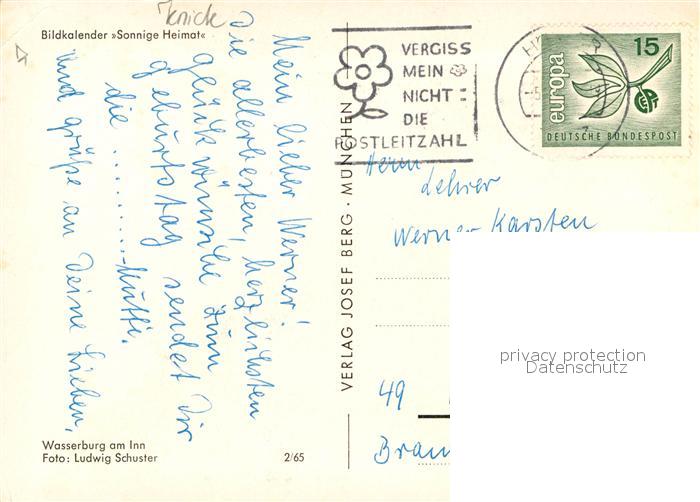 Knick
Bildkalender »Sonnige Heimat«
Mein lieber Werner!
Die allerbesten, herzlichsten
Glückwünsche zum
Geburtstag sendet Dir
die .......... Mutti.
und grüße an Deine Lieben,
Wasserburg am Inn
Foto: Ludwig Schuster
2/65
VERLAG JOSEF BERG · MÜNCHEN
VERGISS
MEIN
NICHT:
DIE
POSTLEITZAHL
europa
15
DEUTSCHE BUNDESPOST
Herrn
Lehrer
Werner Karsten
49
Bram
privacy protection
Datenschutz